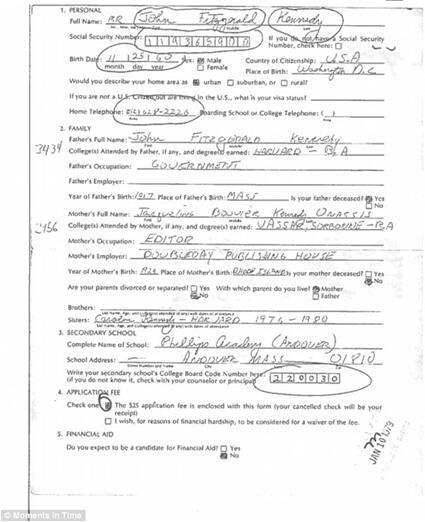 1. PERSONAL
Full Name: John Fitzgerald Kennedy
Social Security Number: If you do not have a Social Security
Number, check here:
Birth Date: 11 25 60 Sex: Male Country of Citizenship: U.S.A
month day year Female Place of Birth: Washington D.C
Would you describe your home area as urban suburban, or rural?
If you are not a U.S. Citizen but are living in the U.S., what is your visa status?
Home Telephone: Boarding School or College Telephone: ( )
2. FAMILY
Father's Full Name: John FITZGERALD Kennedy
3434 College(s) Attended by Father, if any, and degree(s) earned: HARVARD - B, A
Father's Occupation: GOVERNMENT
Father's Employer:
Year of Father's Birth: 1917 Place of Father's Birth: MASS Is your father deceased? Yes
No
Mother's Full Name: Jacqueline BOUVIER Kennedy ONASSIS
College(s) Attended by Mother, if any, and degree(s) earned: VASSAR, SORBONNE - B, A
Mother's Occupation: EDITOR
Mother's Employer: DOUBLEDAY PUBLISHING HOUSE
Year of Mother's Birth: Place of Mother's Birth: RHODE ISLAND Is your mother deceased? Yes
No
Are your parents divorced or separated? Yes With which parent do you live? Mother
No Father
Brothers:
Sisters: Caroline Kennedy - HARVARD 1976 - 1980
3. SECONDARY SCHOOL
Complete Name of School: Phillips Academy (ANDOVER)
School Address - ANDOVER MASS 01810
Write your secondary school's College Board Code Number here: 220030
(if you do not know it, check with your counselor or principal)
4. APPLICATION FEE
Check one: The $25 application fee is enclosed with this form (your cancelled check will be your
receipt)
I wish, for reasons of financial hardship, to be considered for a waiver of the fee.
5. FINANCIAL AID
Do you expect to be a candidate for Financial Aid? Yes
No
JAN 10 1979
© Moments in Time